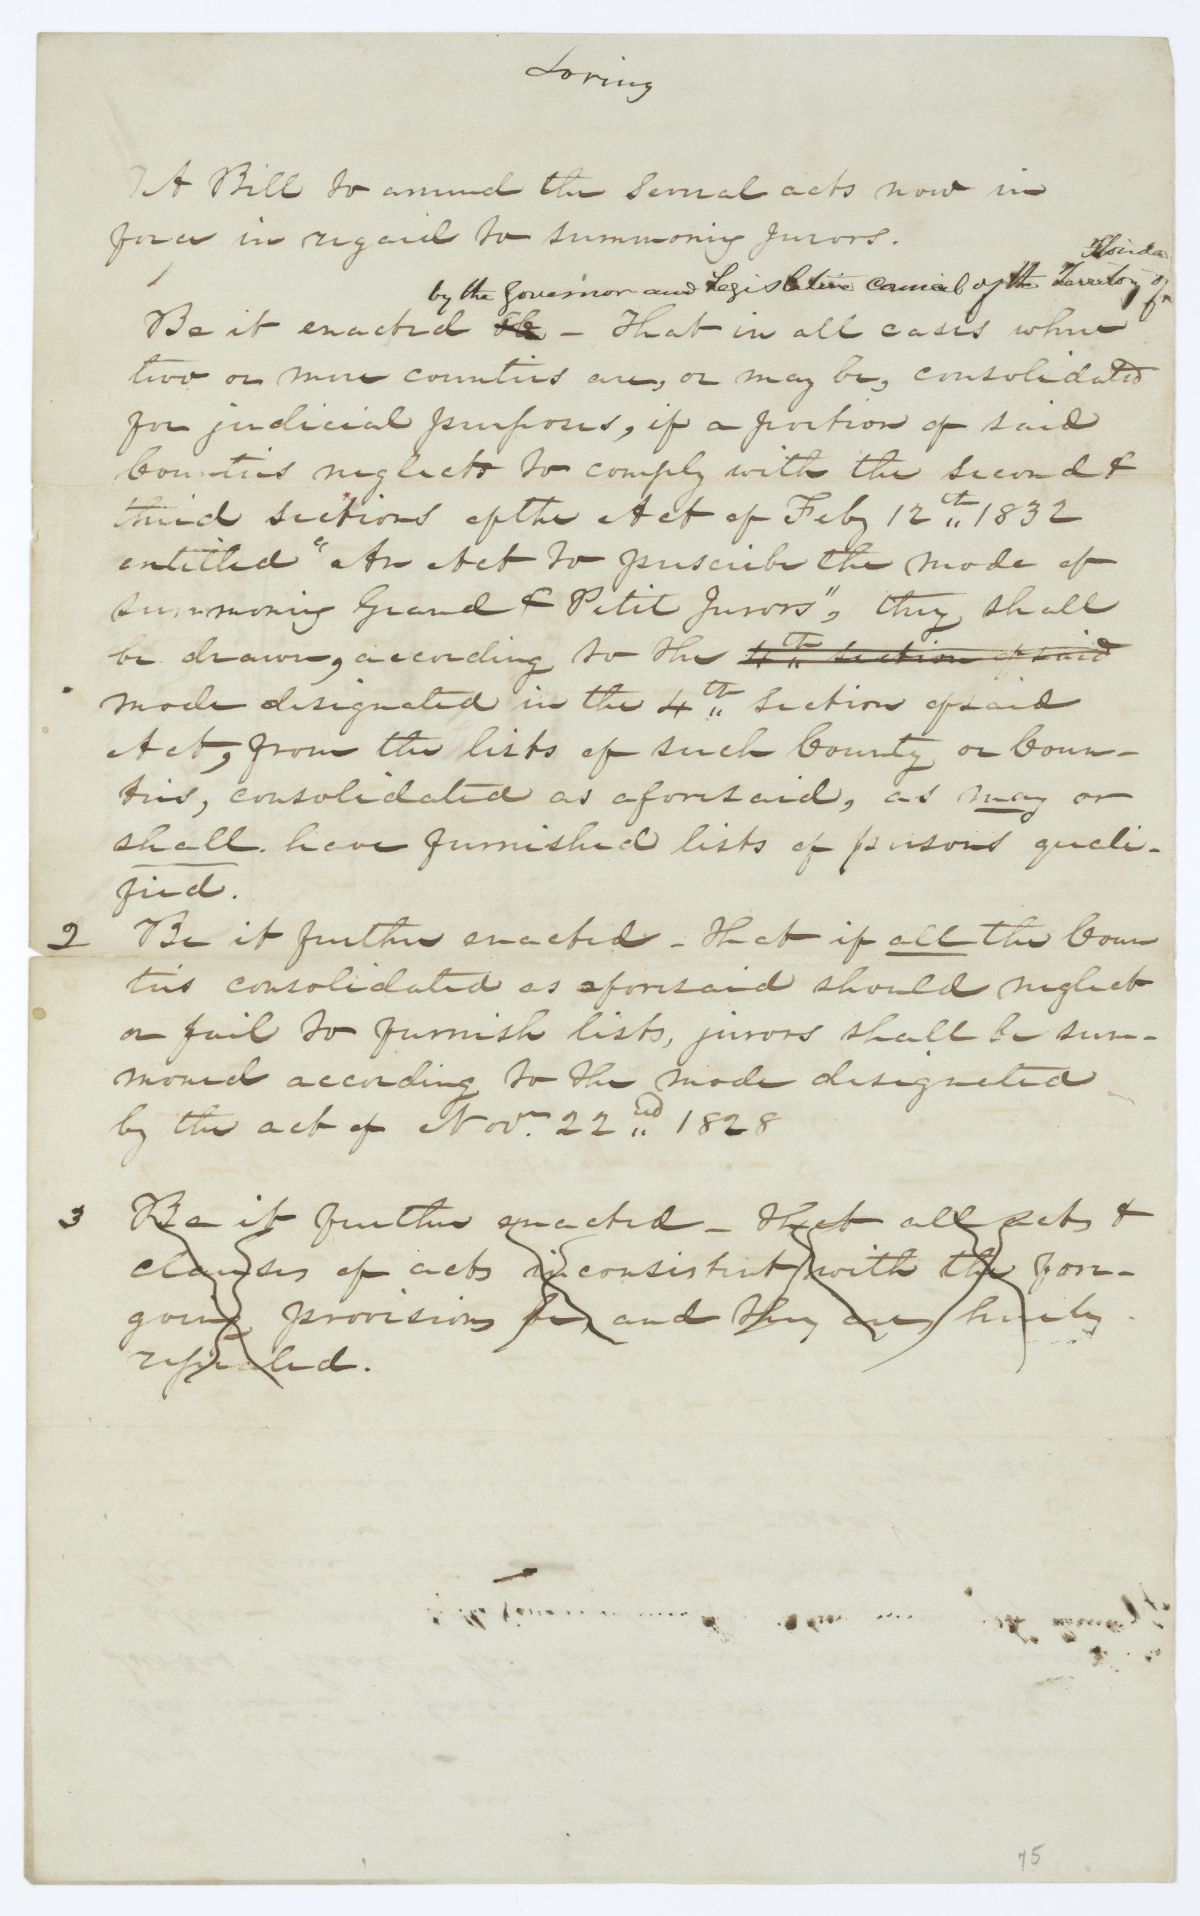 Loring
A Bill to amend the several acts now in
force in regard to summoning Jurors.
Florida
by the Governor and Legislative Council of the Territory of
Be it enacted &c – That in all cases where
two or more counties are, or may be, consolidated
for judicial purposes, if a portion of said
Counties neglects to comply with the second &
third sections of the Act of Feby 12th 1832
entitled "An Act to prescribe the mode of
summoning Grand & Petit Jurors", they shall
be drawn, according to the 4th section of said
mode designated in the 4th section of said
Act, from the lists of such County or Coun-
ties, consolidated as aforesaid, as may or
shall have furnished lists of persons quali-
fied.
2 Be it further enacted – that if all the Coun
ties consolidated as aforesaid should neglect
or fail to furnish lists, jurors shall be sum-
moned according to the mode designated
by the act of Novr. 22nd 1828
3 Be it further enacted – That all acts &
clauses of acts inconsistent with the fore-
going provisions be, and they are, hereby
repealed.
75